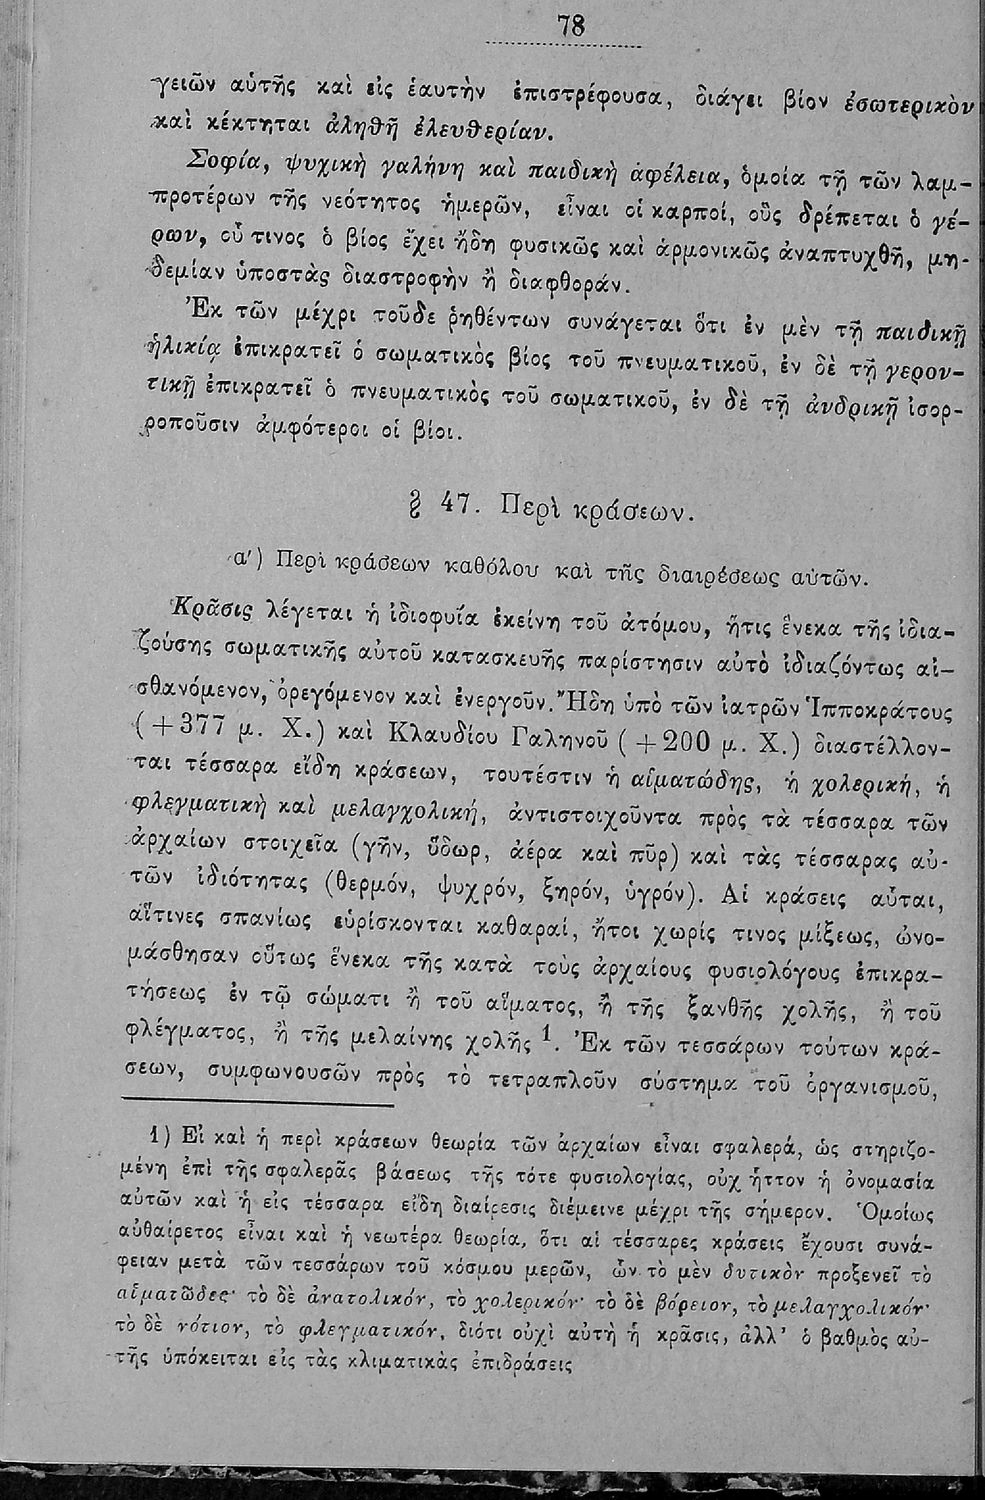 78
γειῶν αὑτῆς καὶ εἰς ἑαυτὴν ἐπιστρέφουσα, διάγει βίον ἐσωτερικὸν
καὶ κέκτηται ἀληθῆ ἐλευθερίαν.
Σοφία, ψυχικὴ γαλήνη καὶ παιδικὴ ἀφέλεια, ὁμοία τῇ τῶν λαμ-
προτέρων τῆς νεότητος ἡμερῶν, εἶναι οἱ καρποί, οὓς δρέπεται ὁ γέ-
ρων, οὗ τινος ὁ βίος ἔχει ἤδη φυσικῶς καὶ ἁρμονικῶς ἀναπτυχθῆ, μη-
δεμίαν ὑποστὰς διαστροφὴν ἢ διαφθοράν.
Ἐκ τῶν μέχρι τοῦδε ῥηθέντων συνάγεται ὅτι ἐν μὲν τῇ παιδικῇ
ἡλικίᾳ ἐπικρατεῖ ὁ σωματικὸς βίος τοῦ πνευματικοῦ, ἐν δὲ τῇ γερον-
τικῇ ἐπικρατεῖ ὁ πνευματικὸς τοῦ σωματικοῦ, ἐν δὲ τῇ ἀνδρικῇ ἰσορ-
ροποῦσιν ἀμφότεροι οἱ βίοι.
§ 47. Περὶ κράσεων.
α') Περὶ κράσεων καθόλου καὶ τῆς διαιρέσεως αὐτῶν.
Κρᾶσις λέγεται ἡ ἰδιοφυΐα ἐκείνη τοῦ ἀτόμου, ἥτις ἕνεκα τῆς ἰδια-
ζούσης σωματικῆς αὐτοῦ κατασκευῆς παρίστησιν αὐτὸ ἰδιαζόντως αἰ-
σθανόμενον, ὀρεγόμενον καὶ ἐνεργοῦν. Ἤδη ὑπὸ τῶν ἰατρῶν Ἱπποκράτους
(+377 μ. Χ.) καὶ Κλαυδίου Γαληνοῦ (+200 μ. Χ.) διαστέλλον-
ται τέσσαρα εἴδη κράσεων, τουτέστιν ἡ αἱματώδης, ἡ χολερική, ἡ
φλεγματικὴ καὶ μελαγχολική, ἀντιστοιχοῦντα πρὸς τὰ τέσσαρα τῶν
ἀρχαίων στοιχεῖα (γῆν, ὕδωρ, ἀέρα καὶ πῦρ) καὶ τὰς τέσσαρας αὐ-
τῶν ἰδιότητας (θερμόν, ψυχρόν, ξηρόν, ὑγρόν). Αἱ κράσεις αὗται,
αἵτινες σπανίως εὑρίσκονται καθαραί, ἤτοι χωρίς τινος μίξεως, ὠνο-
μάσθησαν οὕτως ἕνεκα τῆς κατὰ τοὺς ἀρχαίους φυσιολόγους ἐπικρα-
τήσεως ἐν τῷ σώματι ἢ τοῦ αἵματος, ἢ τῆς ξανθῆς χολῆς, ἢ τοῦ
φλέγματος, ἢ τῆς μελαίνης χολῆς 1. Ἐκ τῶν τεσσάρων τούτων κρά-
σεων, συμφωνουσῶν πρὸς τὸ τετραπλοῦν σύστημα τοῦ ὀργανισμοῦ,
1) Εἰ καὶ ἡ περὶ κράσεων θεωρία τῶν ἀρχαίων εἶναι σφαλερά, ὡς στηριζο-
μένη ἐπὶ τῆς σφαλερᾶς βάσεως τῆς τότε φυσιολογίας, οὐχ ἧττον ἡ ὀνομασία
αὐτῶν καὶ ἡ εἰς τέσσαρα εἴδη διαίρεσις διέμεινε μέχρι τῆς σήμερον. Ὁμοίως
αὐθαίρετος εἶναι καὶ ἡ νεωτέρα θεωρία, ὅτι αἱ τέσσαρες κράσεις ἔχουσι συνά-
φειαν μετὰ τῶν τεσσάρων τοῦ κόσμου μερῶν, ὧν τὸ μὲν δυτικὸν προξενεῖ τὸ
αἱματῶδες· τὸ δὲ ἀνατολικόν, τὸ χολερικόν· τὸ δὲ βόρειον, τὸ μελαγχολικόν·
τὸ δὲ νότιον, τὸ φλεγματικόν, διότι οὐχὶ αὐτὴ ἡ κρᾶσις, ἀλλ' ὁ βαθμὸς αὐ-
τῆς ὑπόκειται εἰς τὰς κλιματικὰς ἐπιδράσεις